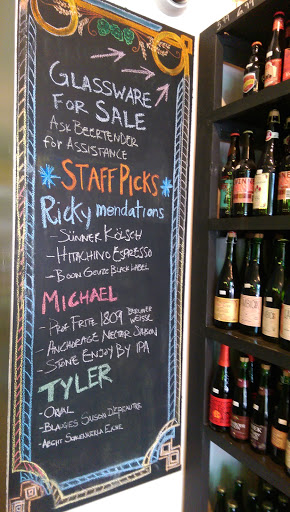 GLASSWARE
FOR SALE
ASK BEERTENDER
FOR ASSISTANCE
STAFF PICKS
Rickymendations
- SÜNNER KÖLSCH
- HITACHINO ESPRESSO
- BOON GEUZE BLACK LABEL
MICHAEL
- PROF FRITZ 1809 BERLINER WEISSE
- ANCHORAGE NECTAR SAISON
- STONE ENJOY BY IPA
TYLER
- ORVAL
- BLAUGIES SAISON D'EPEAUTRE
- AECHT SCHLENKERLA EICHE